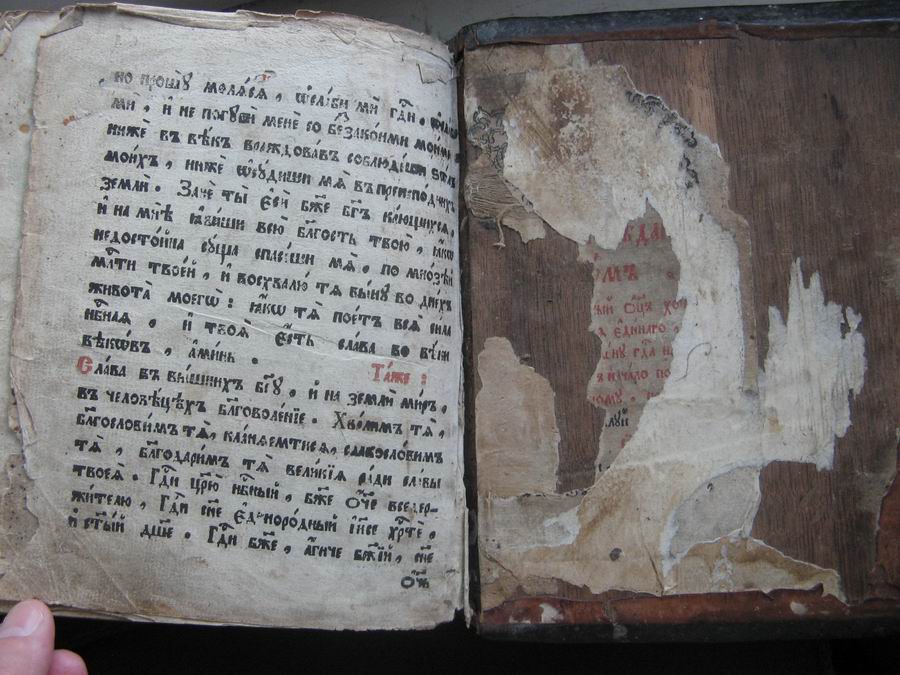 но прошꙋ молѧсѧ, ѡ҆слаби мѝ гдⷭ҇и,
мѝ, и҆ не погꙋби менѐ со беззако́ньми мои́ми
нижѐ въ вѣ́къ враждова́въ соблюдеши ѕла̑ѧ
мои́хъ, нижѐ ѡ҆сꙋдиши мѧ̀ въ преиспо́днихъ
землѝ. Занѐ ты̀ є҆сѝ бж҃е бг҃ъ ка́ющихсѧ,
и҆ на мнѣ̀ ꙗ҆ви́ши всю̀ бл҃гость твою̀, ꙗ҆́кѡ
недосто́йна сꙋ́ща спасе́ши мѧ̀. по мно́зѣй
млⷭ҇ти твое́й, и҆ восхвалю̀ тѧ̀ вы́нꙋ во дне́хъ
живота̀ моегѡ̀: ꙗ҆́кѡ тѧ̀ пое́тъ всѧ̀ сила
нбⷭ҇наѧ, и҆ твоѧ̀ є҆́сть слава во вѣ́ки
вѣкѡ́въ, а҆ми́нь. Та́же:
Сла́ва въ вы́шнихъ бг҃ꙋ, и҆ на землѝ ми́ръ,
въ человѣ́цѣхъ бл҃говоле́нїе. Хва́лимъ тѧ̀,
бл҃гослови́мъ тѧ̀, кла́нѧемтисѧ, славосло́вимъ
тѧ̀, бл҃годари́мъ тѧ̀ вели́кїѧ ра́ди сла́вы
твоеѧ̀. Гдⷭ҇и цр҃ю̀ нбⷭ҇ный, бж҃е ѻ҆́ч҃е вседер-
жи́телю, Гдⷭ҇и сн҃е є҆диноро́дный і҆и҃се хрⷭ҇тѐ,
и҆ ст҃ы́й дш҃е. Гдⷭ҇и бж҃е, а҆́гнче бж҃їй, сн҃е
ѻ҆́ч҃ь
є҆ди́наго,
начало по